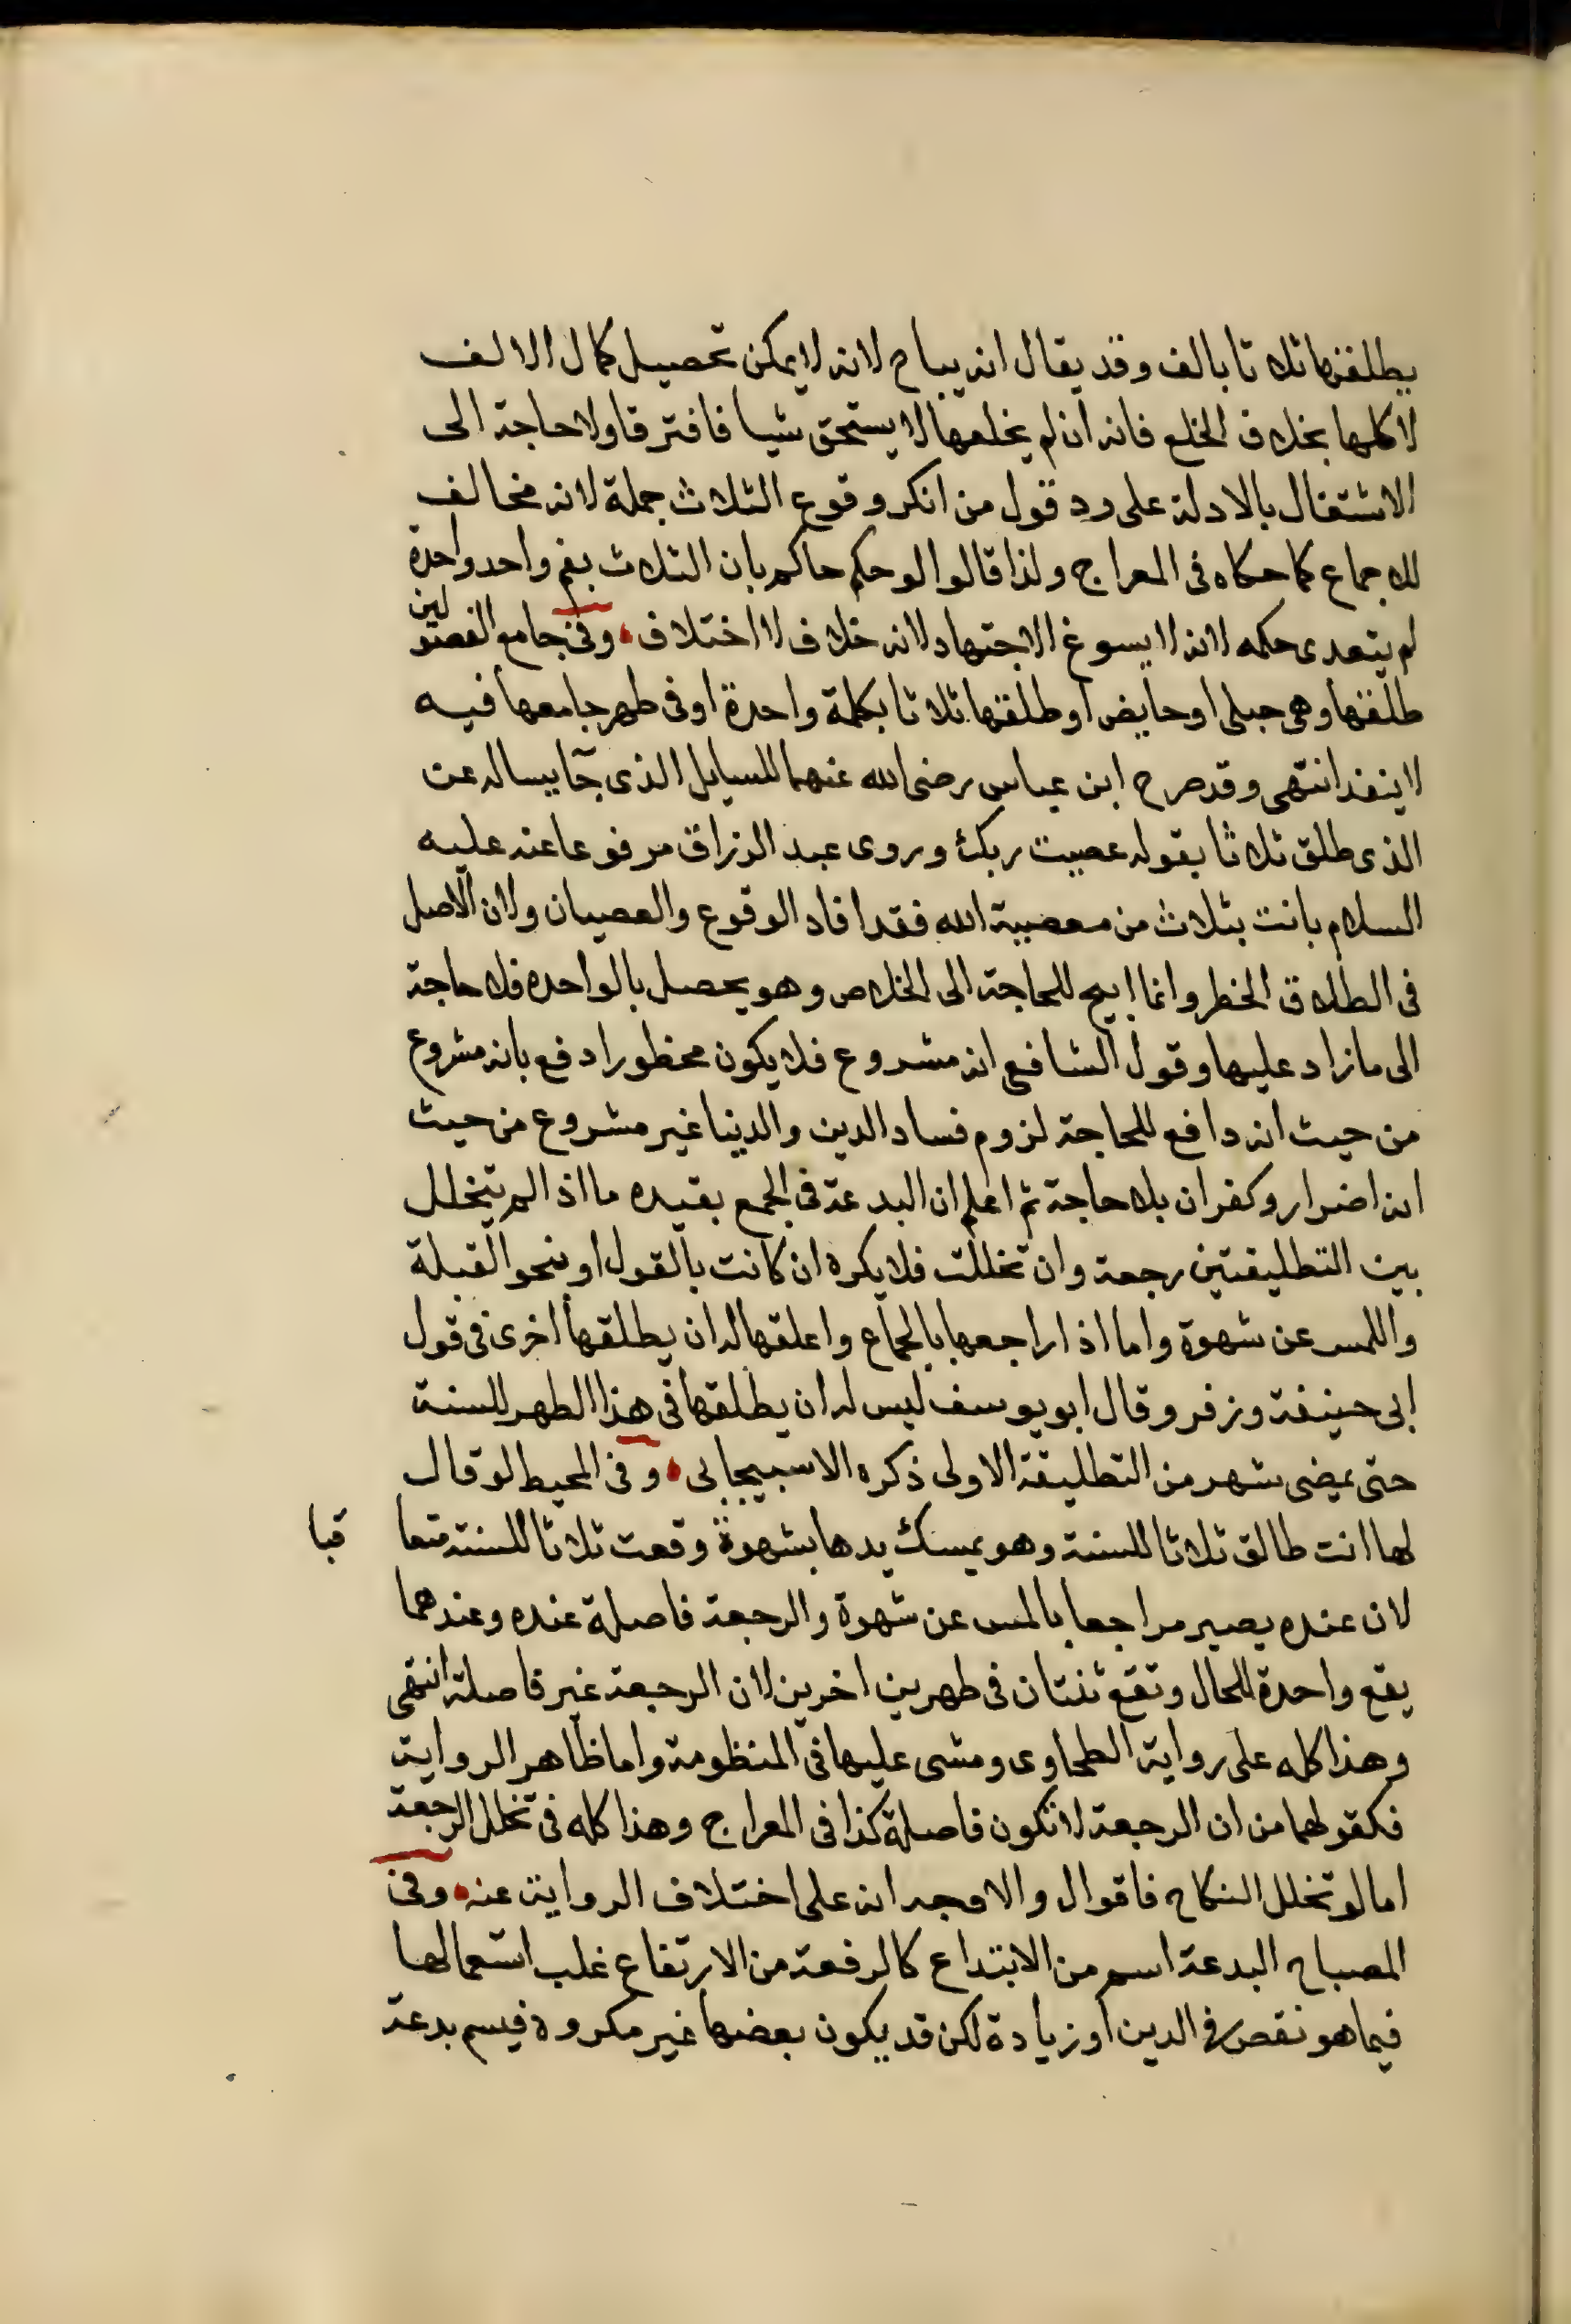 يطلقها ثلاثا بالف وقد يقال انه يباح لانه لا يمكن تحصيل كمال الالف
الا كلها بخلاف الخلع فانه ان لم يخلعها لا يستحق شيا فافترقا ولا حاجة الى
الاشتغال بالادلة على رد قول من انكر وقوع الثلاث جملة لانه مخالف
للاجماع كما حكاه فى المعراج ولذا قالوا لو حكم حاكم بان الثلاث بفم واحد واحدة
لم يتعدى حكمه لانه لا يسوغ الاجتهاد لانه خلاف لا اختلاف وفى جامع الفصولين
طلقها وهى حبلى او حايض او طلقها ثلاثا بكلمة واحدة او فى طهر جامعها فيه
لا ينفذ انتهى وقد صرح ابن عباس رضى الله عنهما للسايل الذى جا يساله عن
الذى طلق ثلاثا بقوله عصيت ربك وروى عبد الرزاق مرفوعا عنه عليه
السلام بانت بثلاث من معصية الله فقد افاد الوقوع والعصيان ولان الاصل
فى الطلاق الخطر وانما ابيح للحاجة الى الخلاص وهو يحصل بالواحده فلا حاجة
الى ما زاد عليها وقول الشافعى انه مشروع فلا يكون محظورا دفع بانه مشروع
من حيث انه دافع للحاجة لزوم فساد الدين والدنيا غير مشروع من حيث
انه اضرار وكفران بلا حاجة ثم اعلم ان البدعة فى الجمع بقيده ما اذا لم تتخلل
بين التطليقتين رجعة وان تخللت فلا يكره ان كانت بالقول او بنحو القبلة
واللمس عن شهوة واما اذا راجعها بالجماع واعلقها له ان يطلقها اخرى فى قول
ابى حنيفة وزفر وقال ابو يوسف ليس له ان يطلقها فى هذا الطهر للسنة
حتى يمضى شهر من التطليقة الاولى ذكره الاسبيجابى وفى المحيط لو قال
لها انت طالق ثلاثا للسنة وهو يمسك يدها بشهوة وقعت ثلاثا للسنة متعا قبا
لان عنده يصير مراجعا بالمس عن شهوة والرجعة فاصلة عنده وعندهما
يقع واحدة للحال وتقع ثنتان فى طهرين اخرين لان الرجعة غير فاصلة انتهى
وهذا كله على رواية الطحاوى ومشى عليها فى المنظومة واما ظاهر الرواية
فكقولهما من ان الرجعة لا تكون فاصلة كذا فى المعراج وهذا كله فى تخلل الرجعة
اما لو تخلل النكاح فاقوال والاوجه انه على اختلاف الرواية عنه وفى
المصباح البدعة اسم من الابتداع كالرفعة من الارتفاع غلب استعمالها
فيما هو نقص فى الدين او زيادة لكن قد يكون بعضها غير مكروه فيسم بدعة